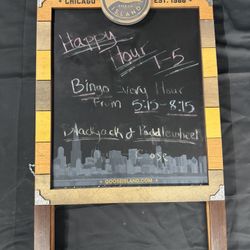 CHICAGO EST. 1988
ISLAND
Happy
Hour 1-5
Bingo Every Hour
From 5:15-8:15
Blackjack & Paddlewheel
GOOSEISLAND.COM